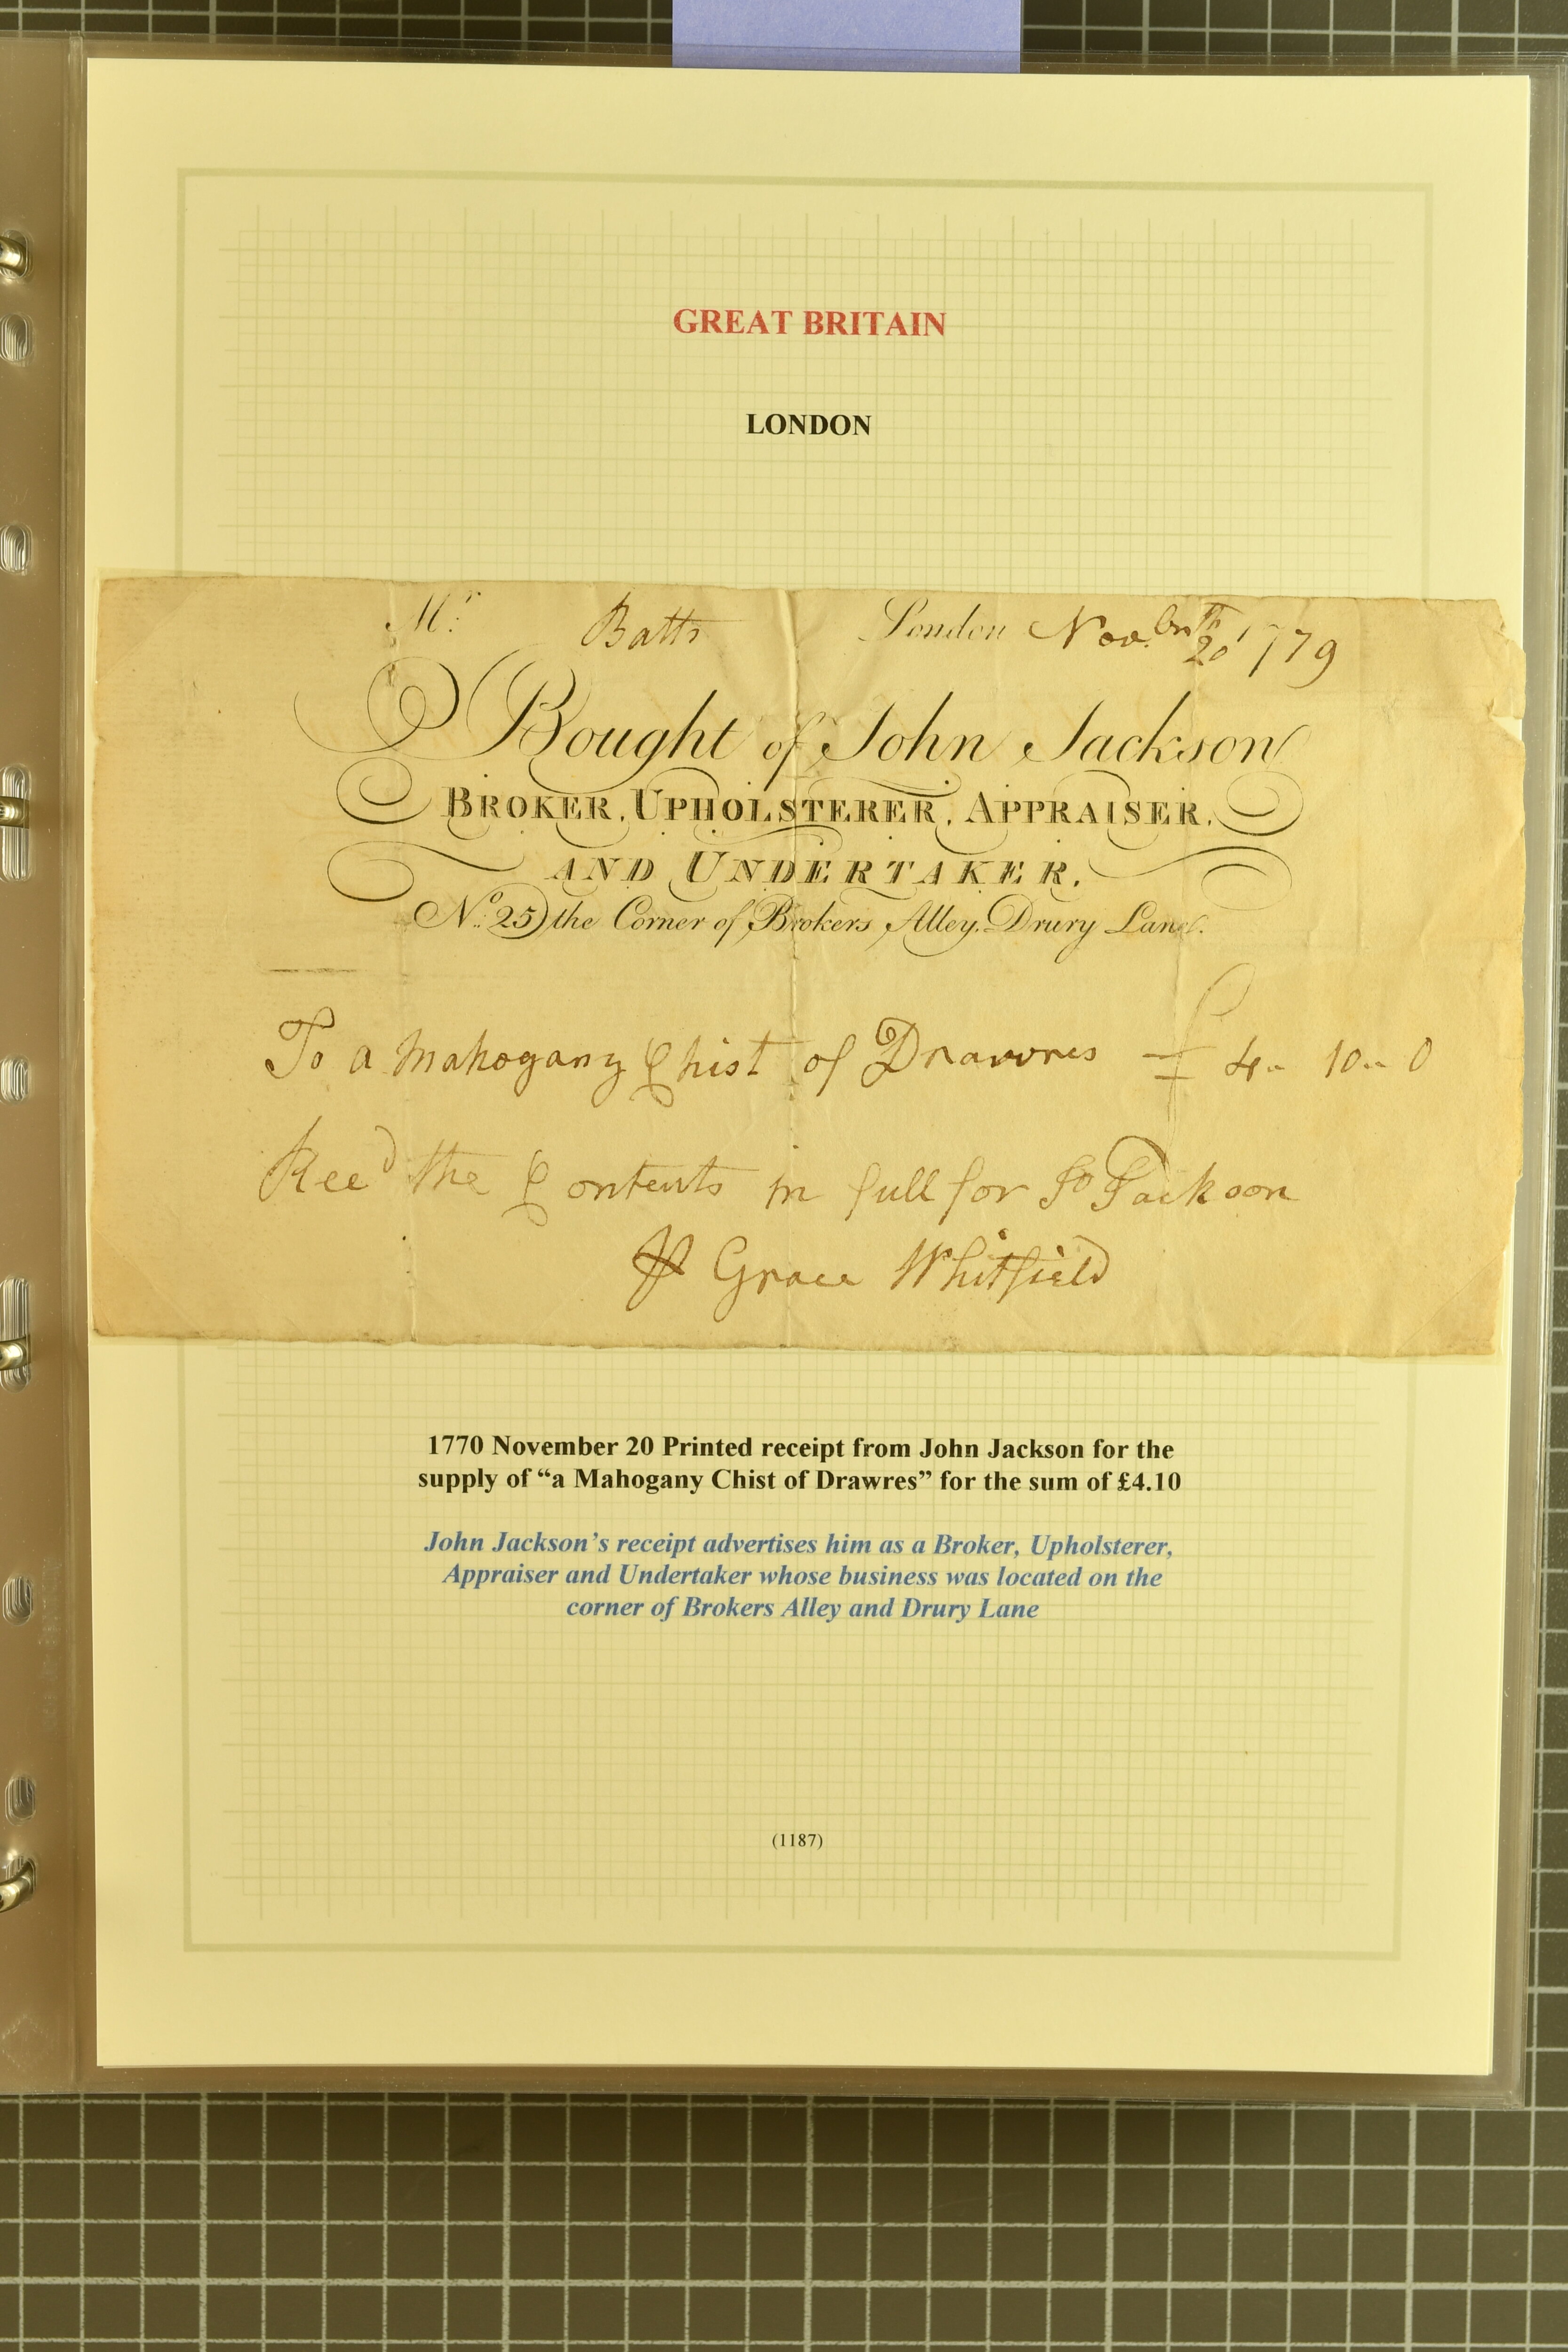 GREAT BRITAIN
LONDON
Mr. Batts London Novbr. 20th 1779
Bought of John Jackson
BROKER, UPHOLSTERER, APPRAISER,
AND UNDERTAKER.
No. 25) the Corner of Brokers Alley, Drury Lane.
To a Mahogany Chist of Drawres £ 4 - 10 - 0
Recd the Contents in full for Jo Jackson
Grace Whitfield
1770 November 20 Printed receipt from John Jackson for the
supply of “a Mahogany Chist of Drawres” for the sum of £4.10
John Jackson’s receipt advertises him as a Broker, Upholsterer,
Appraiser and Undertaker whose business was located on the
corner of Brokers Alley and Drury Lane
(1187)